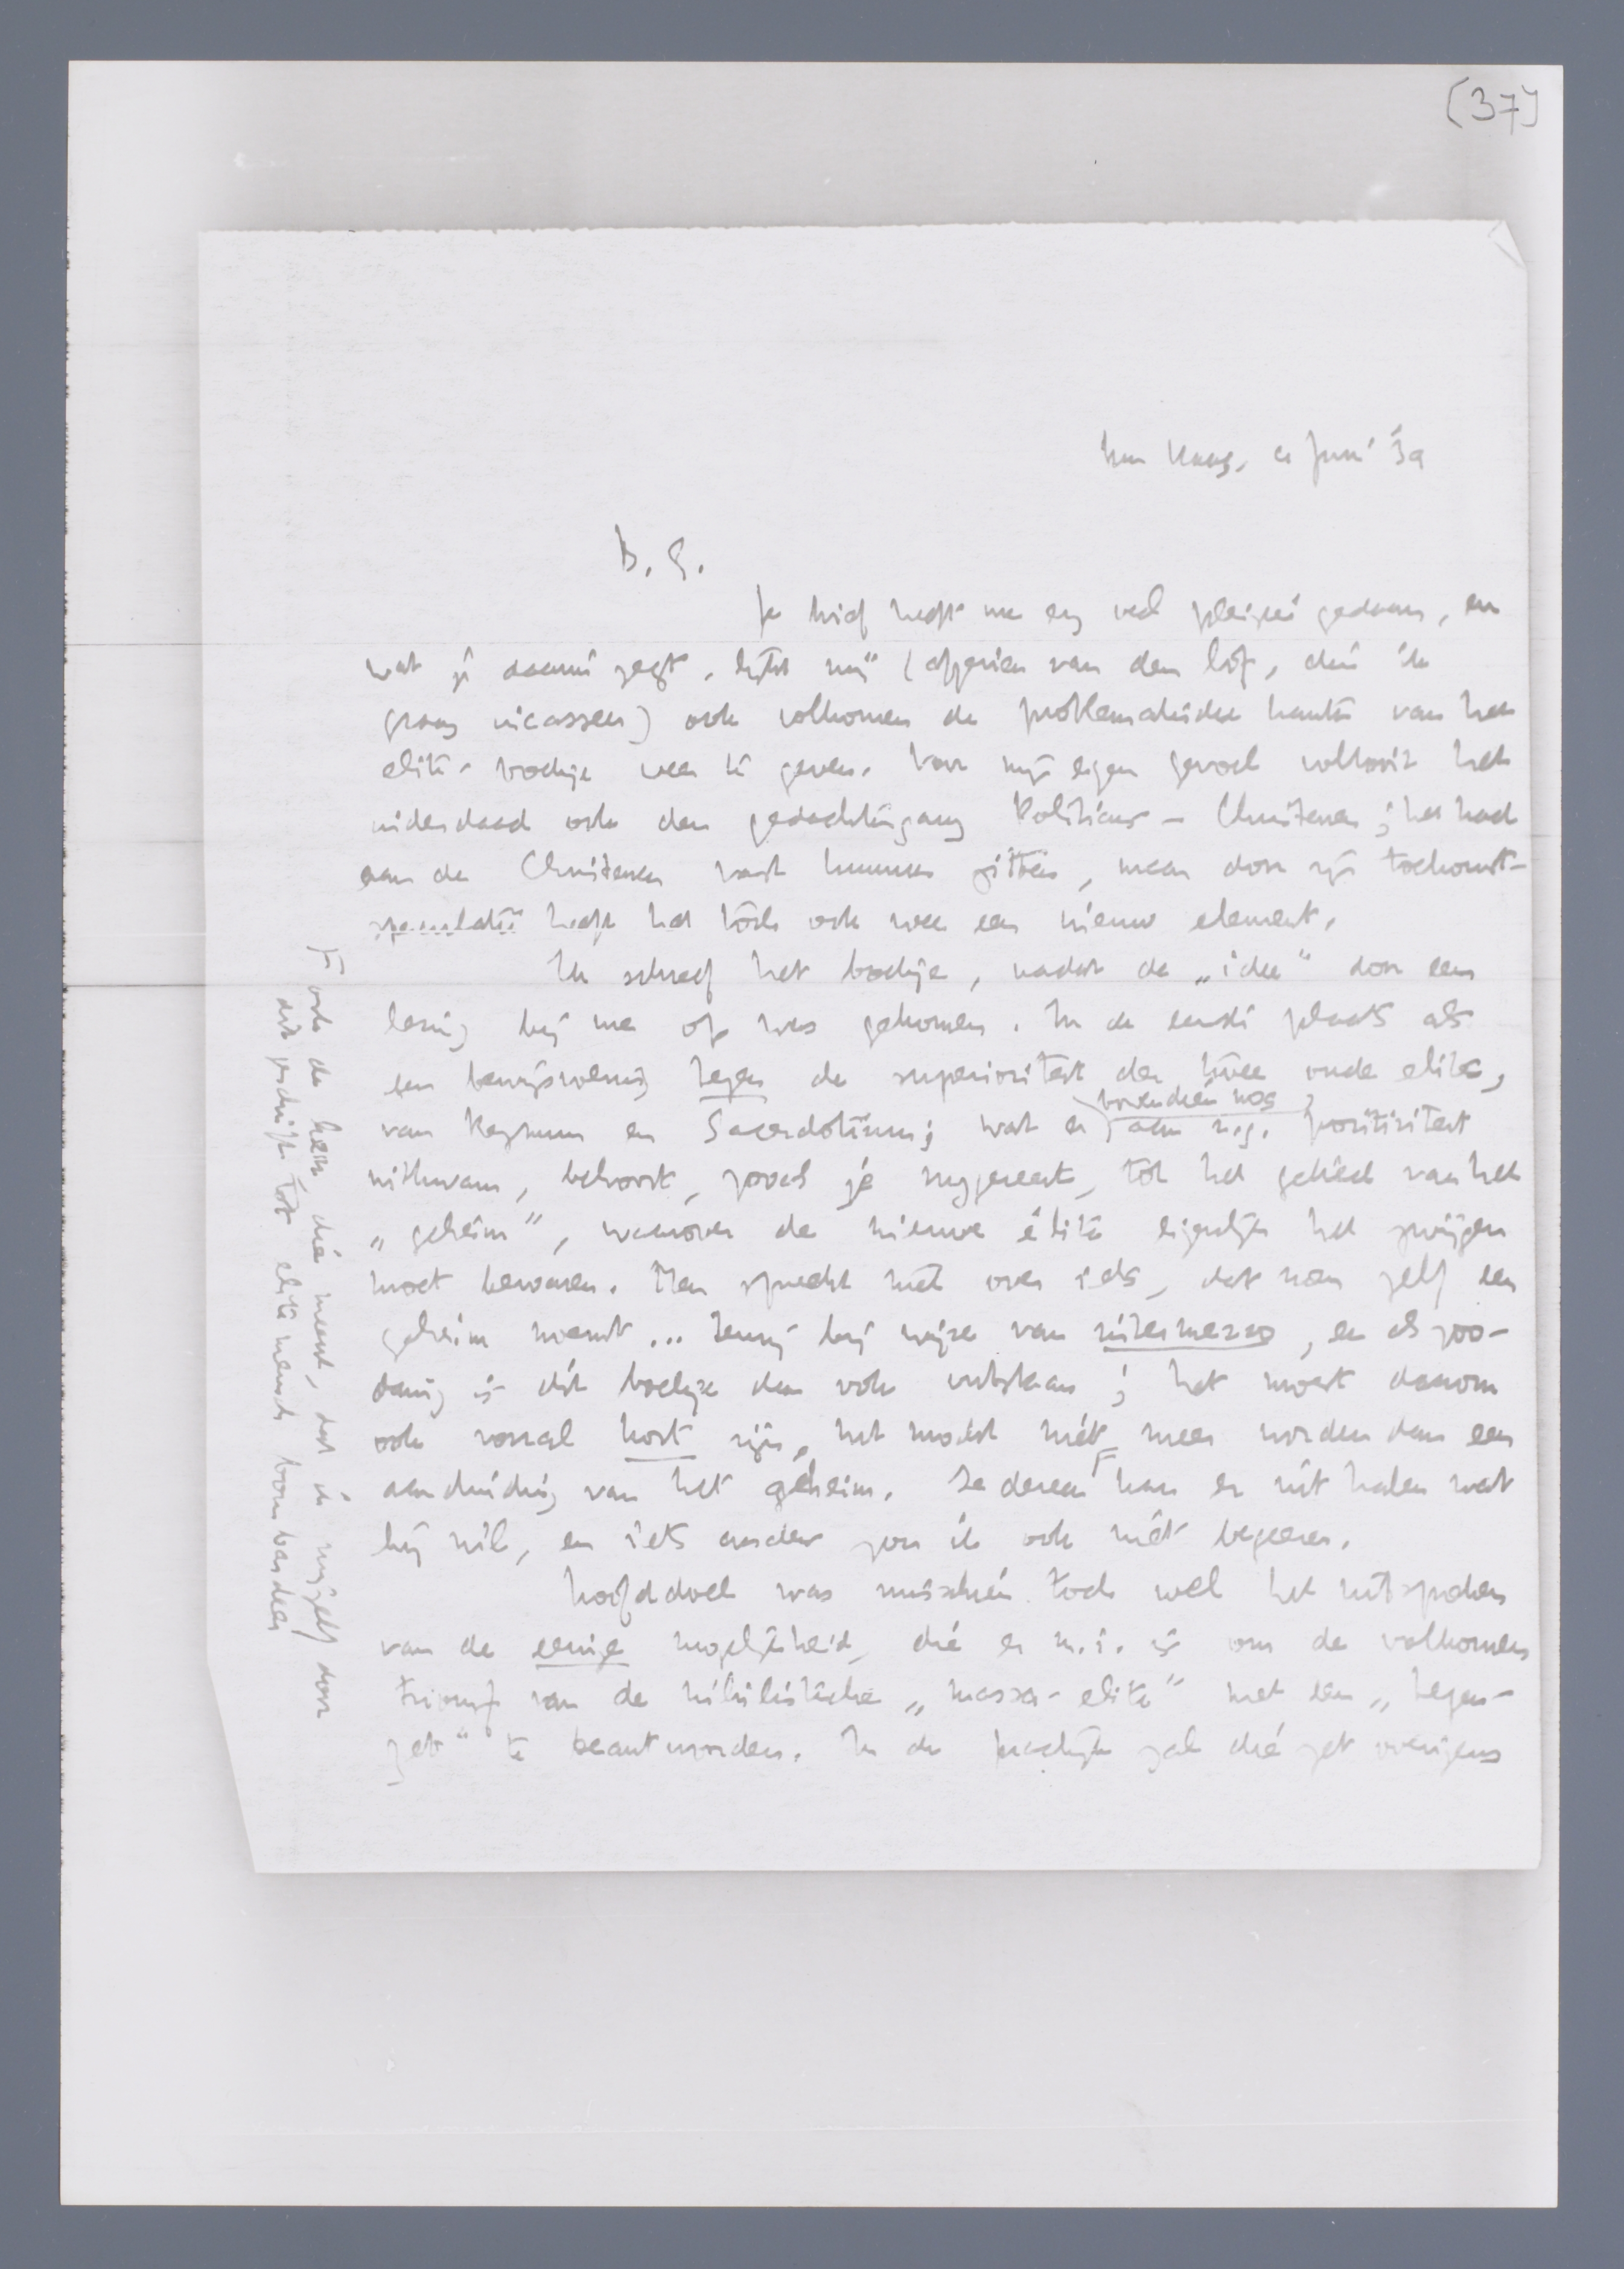 [37]
Den Haag, 21 Juni '39
B. G.
Je brief heeft me erg veel plezier gedaan, en
wat je daarin zegt, lijkt mij (afgezien van den lof, dien ik
graag incasseer) ook volkomen de problematische kanten van het
elite-boekje weer te geven. Voor mijn eigen gevoel voltooit het
inderdaad ook den gedachtengang Politicus – Christenen; het had
aan de Christenen vast kunnen zitten, maar door zijn toekomst-
speculatie heeft het toch ook weer een nieuw element.
Ik schreef het boekje, nadat de „idee" door een
lezing bij me op was gekomen. In de eerste plaats als
een bewijsvoering tegen de superioriteit der twee oude elites,
van Regnum en Sacerdotium; wat er bovendien nog aan z.g. positiviteit
uitkwam, behoort, zooals je suggereert, tot het gebied van het
„geheim", waarover de nieuwe élite eigenlijk het zwijgen
moet bewaren. Men spreekt niet over iets, dat men zelf een
geheim noemt... tenzij bij wijze van intermezzo, en als zoo-
danig is dit boekje dan ook ontstaan; het moest daarom
ook vooral kort zijn, het mocht niet meer worden dan een
aanduiding van het geheim. Iedereen kan er uit halen wat
hij wil, en iets anders zou ik ook niet begeeren.
Hoofddoel was misschien toch wel het uitspelen
van de eenige mogelijkheid, die er m.i. is om de volkomen
triomf van de nihilistische „massa-elite" met een „tegen-
zet" te beantwoorden. In de practijk zal die zet overigens
F ook de heer, die meent, dat ik mijzelf door
dit geschrift tot elitemensch bombardeer